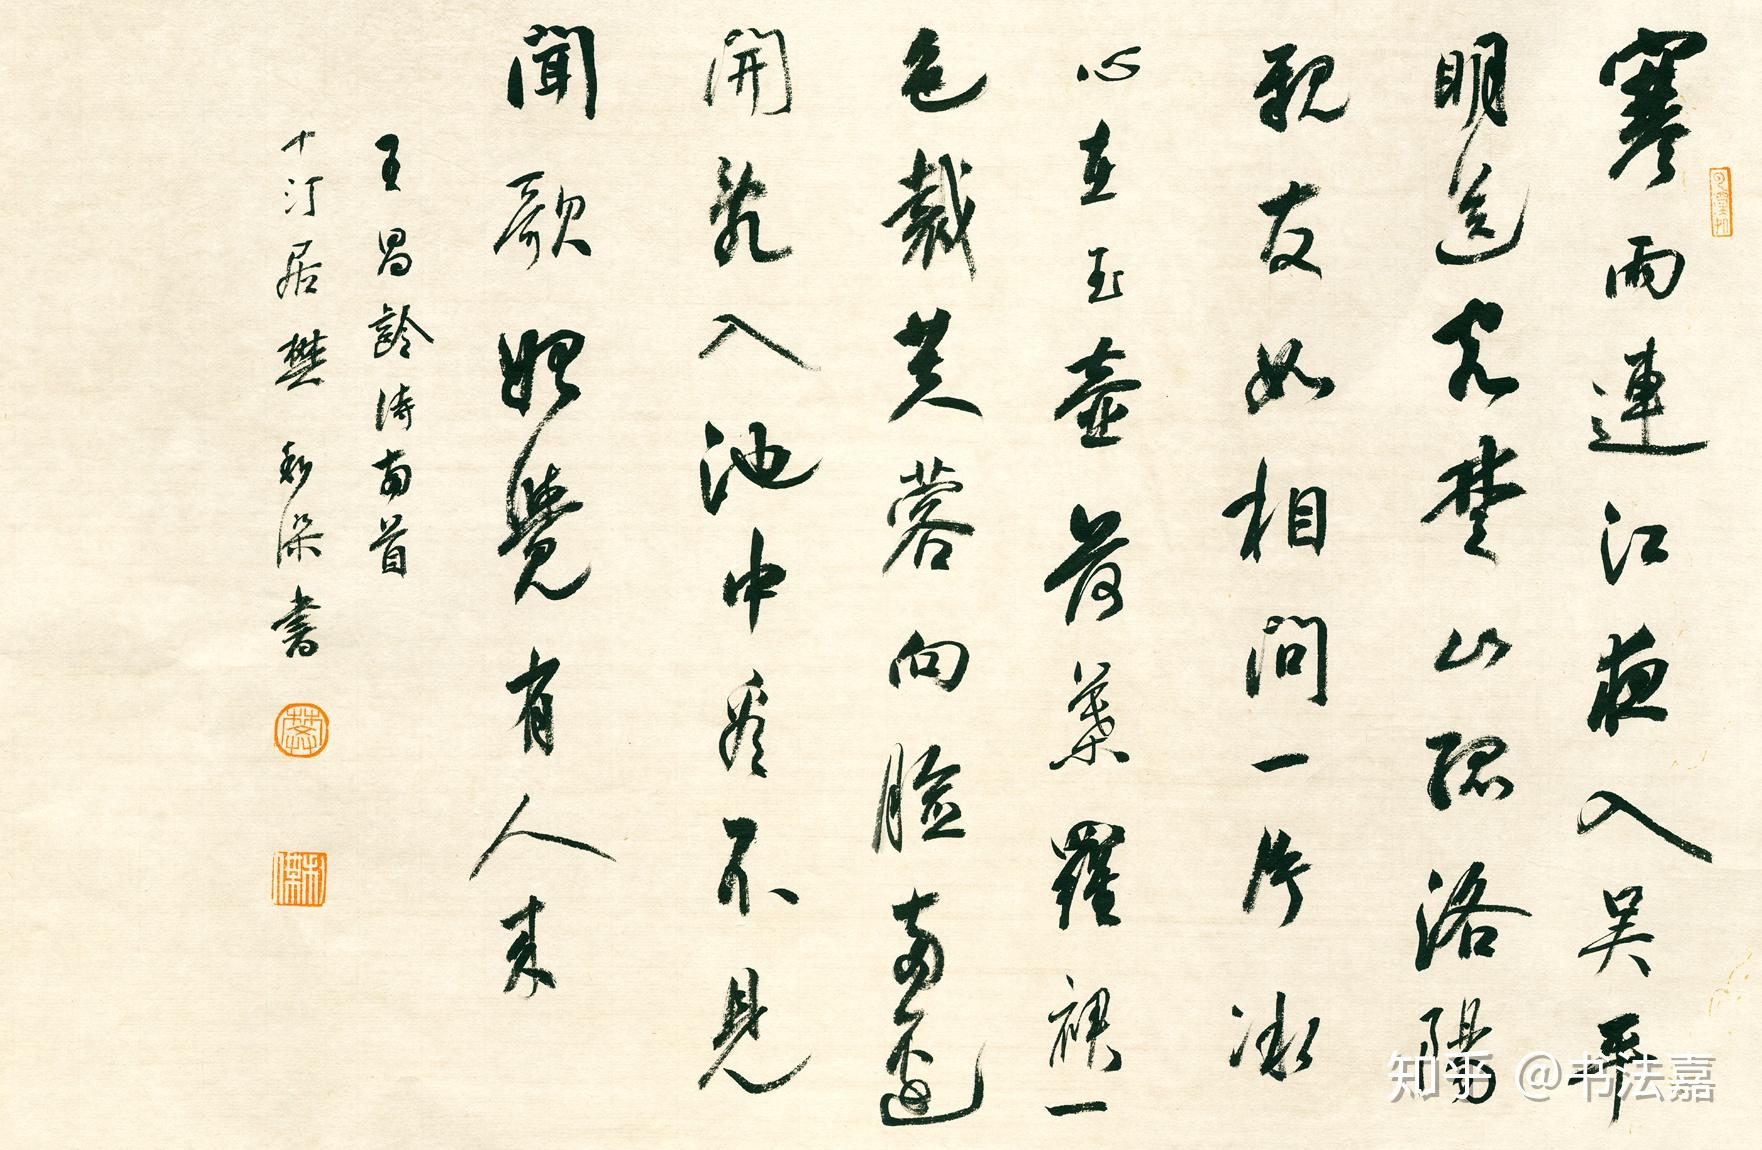 寒雨連江夜入吳平
明送客楚山孤洛陽
親友如相問一片冰
心在玉壺荷葉羅裙一
色裁芙蓉向臉兩邊
開亂入池中看不見
聞歌始覺有人來
王昌齡詩兩首
十汀居樊利傑書
樊
利傑
知乎 @书法嘉